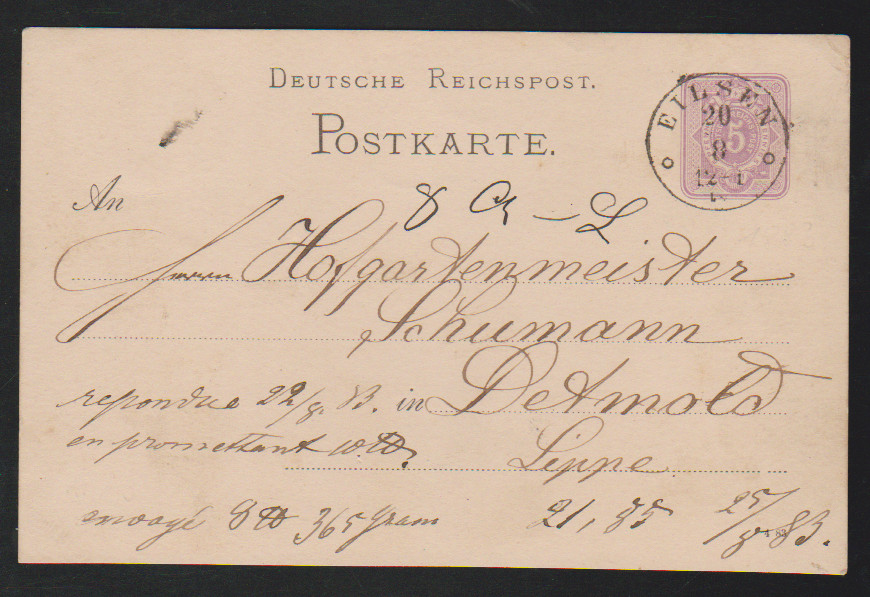 DEUTSCHE REICHSPOST.
POSTKARTE.
EILSEN
20
8
12-1
5
An
Herrn Hofgartenmeister
Schumann
repondue 22/8. 83. in Detmold
en promettant 10 ℔.
Lippe
envoyé 8 ℔ 365 Gram 21,85 25/8 83.